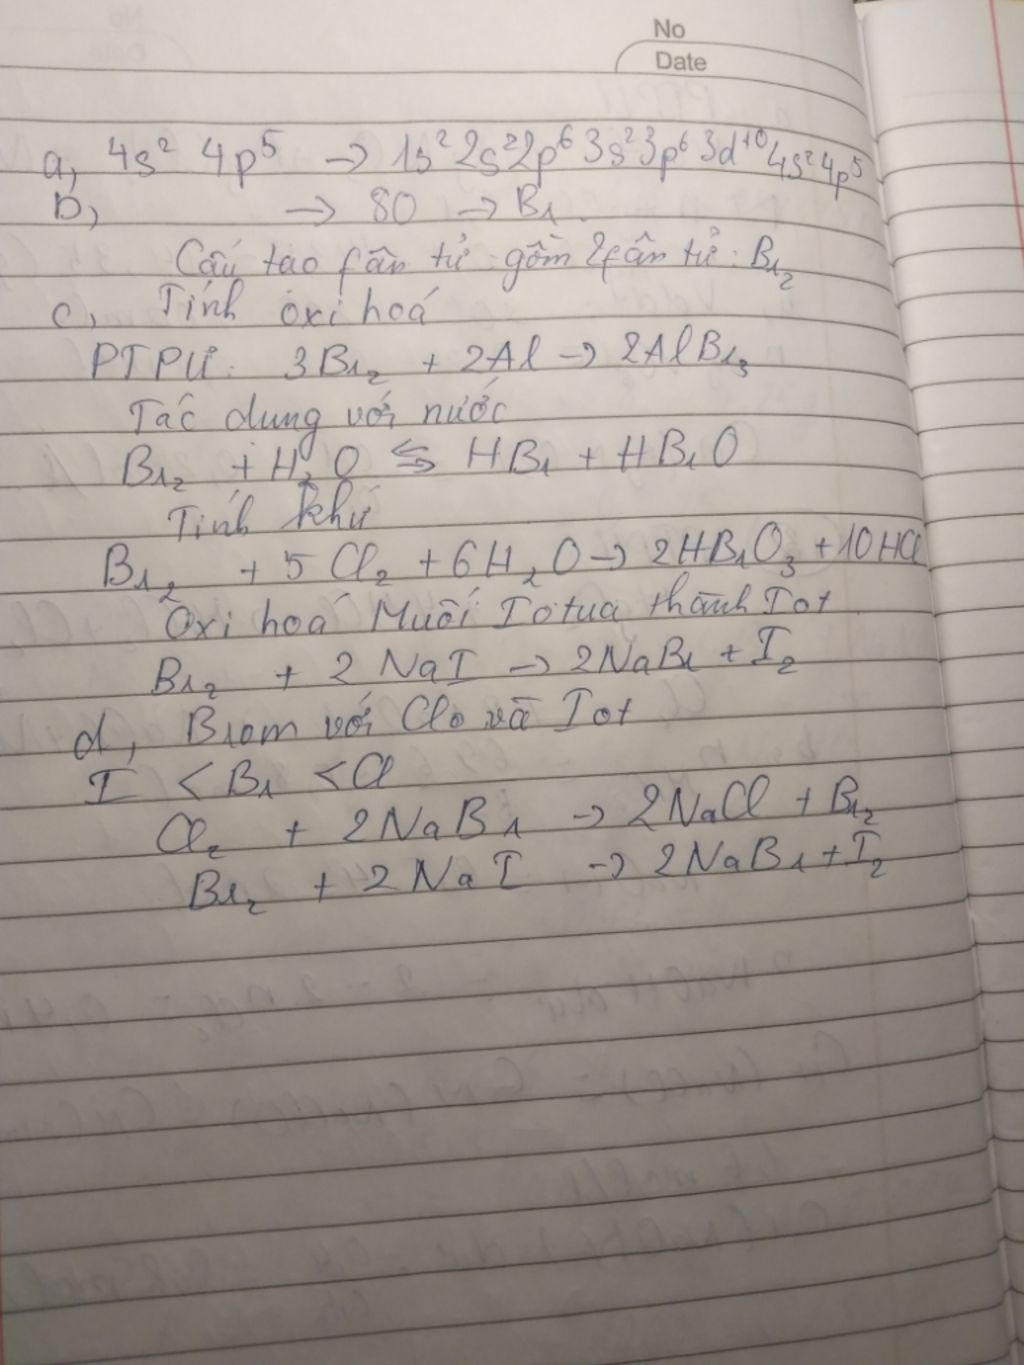 No
Date
a, 4s² 4p⁵ → 1s² 2s² 2p⁶ 3s² 3p⁶ 3d¹⁰ 4s² 4p⁵
b, → 80 → Br.
Cấu tạo fân tử : gồm 2 fân tử : Br₂
c, Tính oxi hoá
PTPƯ: 3Br₂ + 2Al → 2AlBr₃
Tác dụng với nước
Br₂ + H₂O ⇆ HBr + HBrO
Tính khử
Br₂ + 5Cl₂ + 6H₂O → 2HBrO₃ + 10HCl
Oxi hoá Muối Iotua thành Iot
Br₂ + 2NaI → 2NaBr + I₂
d, Brom với Clo và Iot
I < Br < Cl
Cl₂ + 2NaBr → 2NaCl + Br₂
Br₂ + 2NaI → 2NaBr + I₂